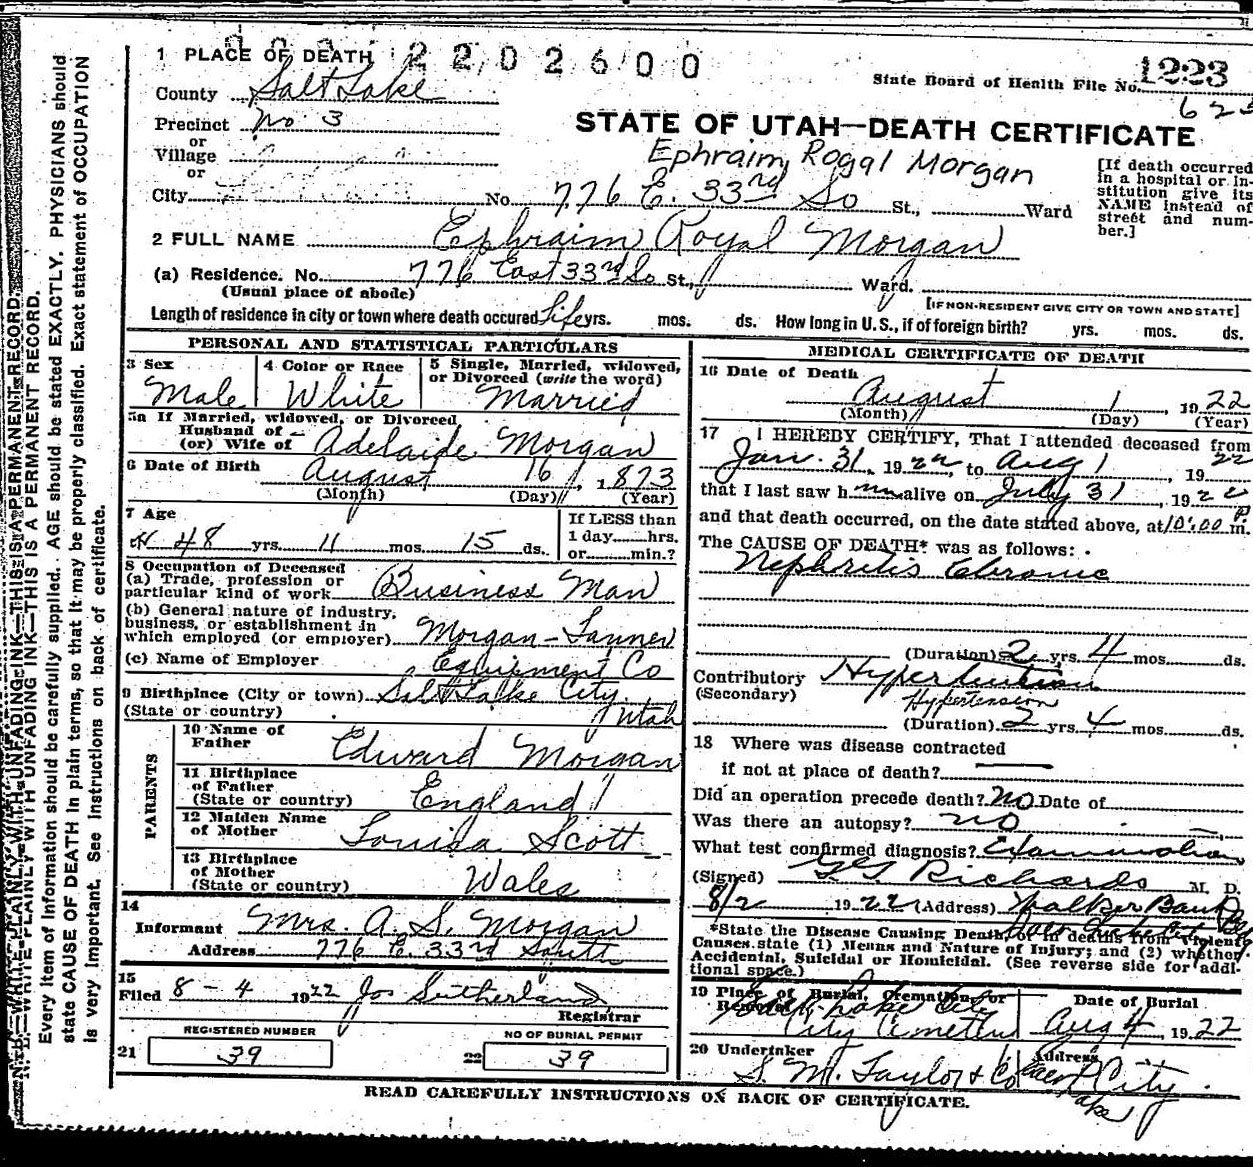 1 PLACE OF DEATH 2202600
State Board of Health File No. 1223
County Salt Lake
Precinct No 3
or
Village
or
City
STATE OF UTAH—DEATH CERTIFICATE
Ephraim Rogal Morgan
[If death occurred in a hospital or institution give its NAME instead of street and number.]
No. 776 E. 33rd So St., Ward
2 FULL NAME Ephraim Royal Morgan
(a) Residence. No. 776 East 33rd So St., Ward.
(Usual place of abode) [IF NON-RESIDENT GIVE CITY OR TOWN AND STATE]
Length of residence in city or town where death occured Life yrs. mos. ds. How long in U.S., if of foreign birth? yrs. mos. ds.
PERSONAL AND STATISTICAL PARTICULARS
3 Sex Male
4 Color or Race White
5 Single, Married, widowed, or Divorced (write the word) Married
5a If Married, widowed, or Divorced
Husband of
(or) Wife of Adelaide Morgan
6 Date of Birth August 16, 1873
(Month) (Day) (Year)
7 Age
48 yrs. 11 mos. 15 ds.
If LESS than
1 day hrs.
or min.?
8 Occupation of Deceased
(a) Trade, profession or
particular kind of work Business Man
(b) General nature of industry,
business, or establishment in
which employed (or employer) Morgan-Tanner
(c) Name of Employer Equipment Co
9 Birthplace (City or town) Salt Lake City
(State or country) Utah
PARENTS
10 Name of
Father Edward Morgan
11 Birthplace
of Father
(State or country) England
12 Maiden Name
of Mother Louisa Scott
13 Birthplace
of Mother
(State or country) Wales
14
Informant Mrs. A. S. Morgan
Address 776 E. 33rd South
15
Filed 8-4 1922 Jos Sutherland
Registrar
REGISTERED NUMBER NO OF BURIAL PERMIT
21 39 22 39
MEDICAL CERTIFICATE OF DEATH
16 Date of Death
August 1, 1922
(Month) (Day) (Year)
17 I HEREBY CERTIFY, That I attended deceased from
Jan. 31, 1922, to Aug 1, 1922
that I last saw him alive on July 31, 1922
and that death occurred, on the date stated above, at 10:00 P m.
The CAUSE OF DEATH* was as follows:
Nephritis Chronic
(Duration) 2 yrs 4 mos. ds.
Contributory Hypertension
(Secondary) Hypertension
(Duration) 2 yrs. 4 mos. ds.
18 Where was disease contracted
if not at place of death?
Did an operation precede death? No Date of
Was there an autopsy? no
What test confirmed diagnosis? Examination
(Signed) G. G. Richards M. D.
8/2 1922 (Address) Walker Bank
*State the Disease Causing Death, or in deaths from Violent
Causes. state (1) Means and Nature of Injury; and (2) whether
Accidental, Suicidal or Homicidal. (See reverse side for additional space.)
19 Place of Burial, Cremation, or Removal Salt Lake City
City Cemetery
Date of Burial
Aug 4, 1922
20 Undertaker Address
S. M. Taylor & Co City
READ CAREFULLY INSTRUCTIONS ON BACK OF CERTIFICATE.
N. B.—WRITE PLAINLY WITH UNFADING INK—THIS IS A PERMANENT RECORD.
Every item of Information should be carefully supplied. AGE should be stated EXACTLY. PHYSICIANS should
state CAUSE OF DEATH in plain terms, so that it may be properly classified. Exact statement of OCCUPATION
is very important. See instructions on back of certificate.